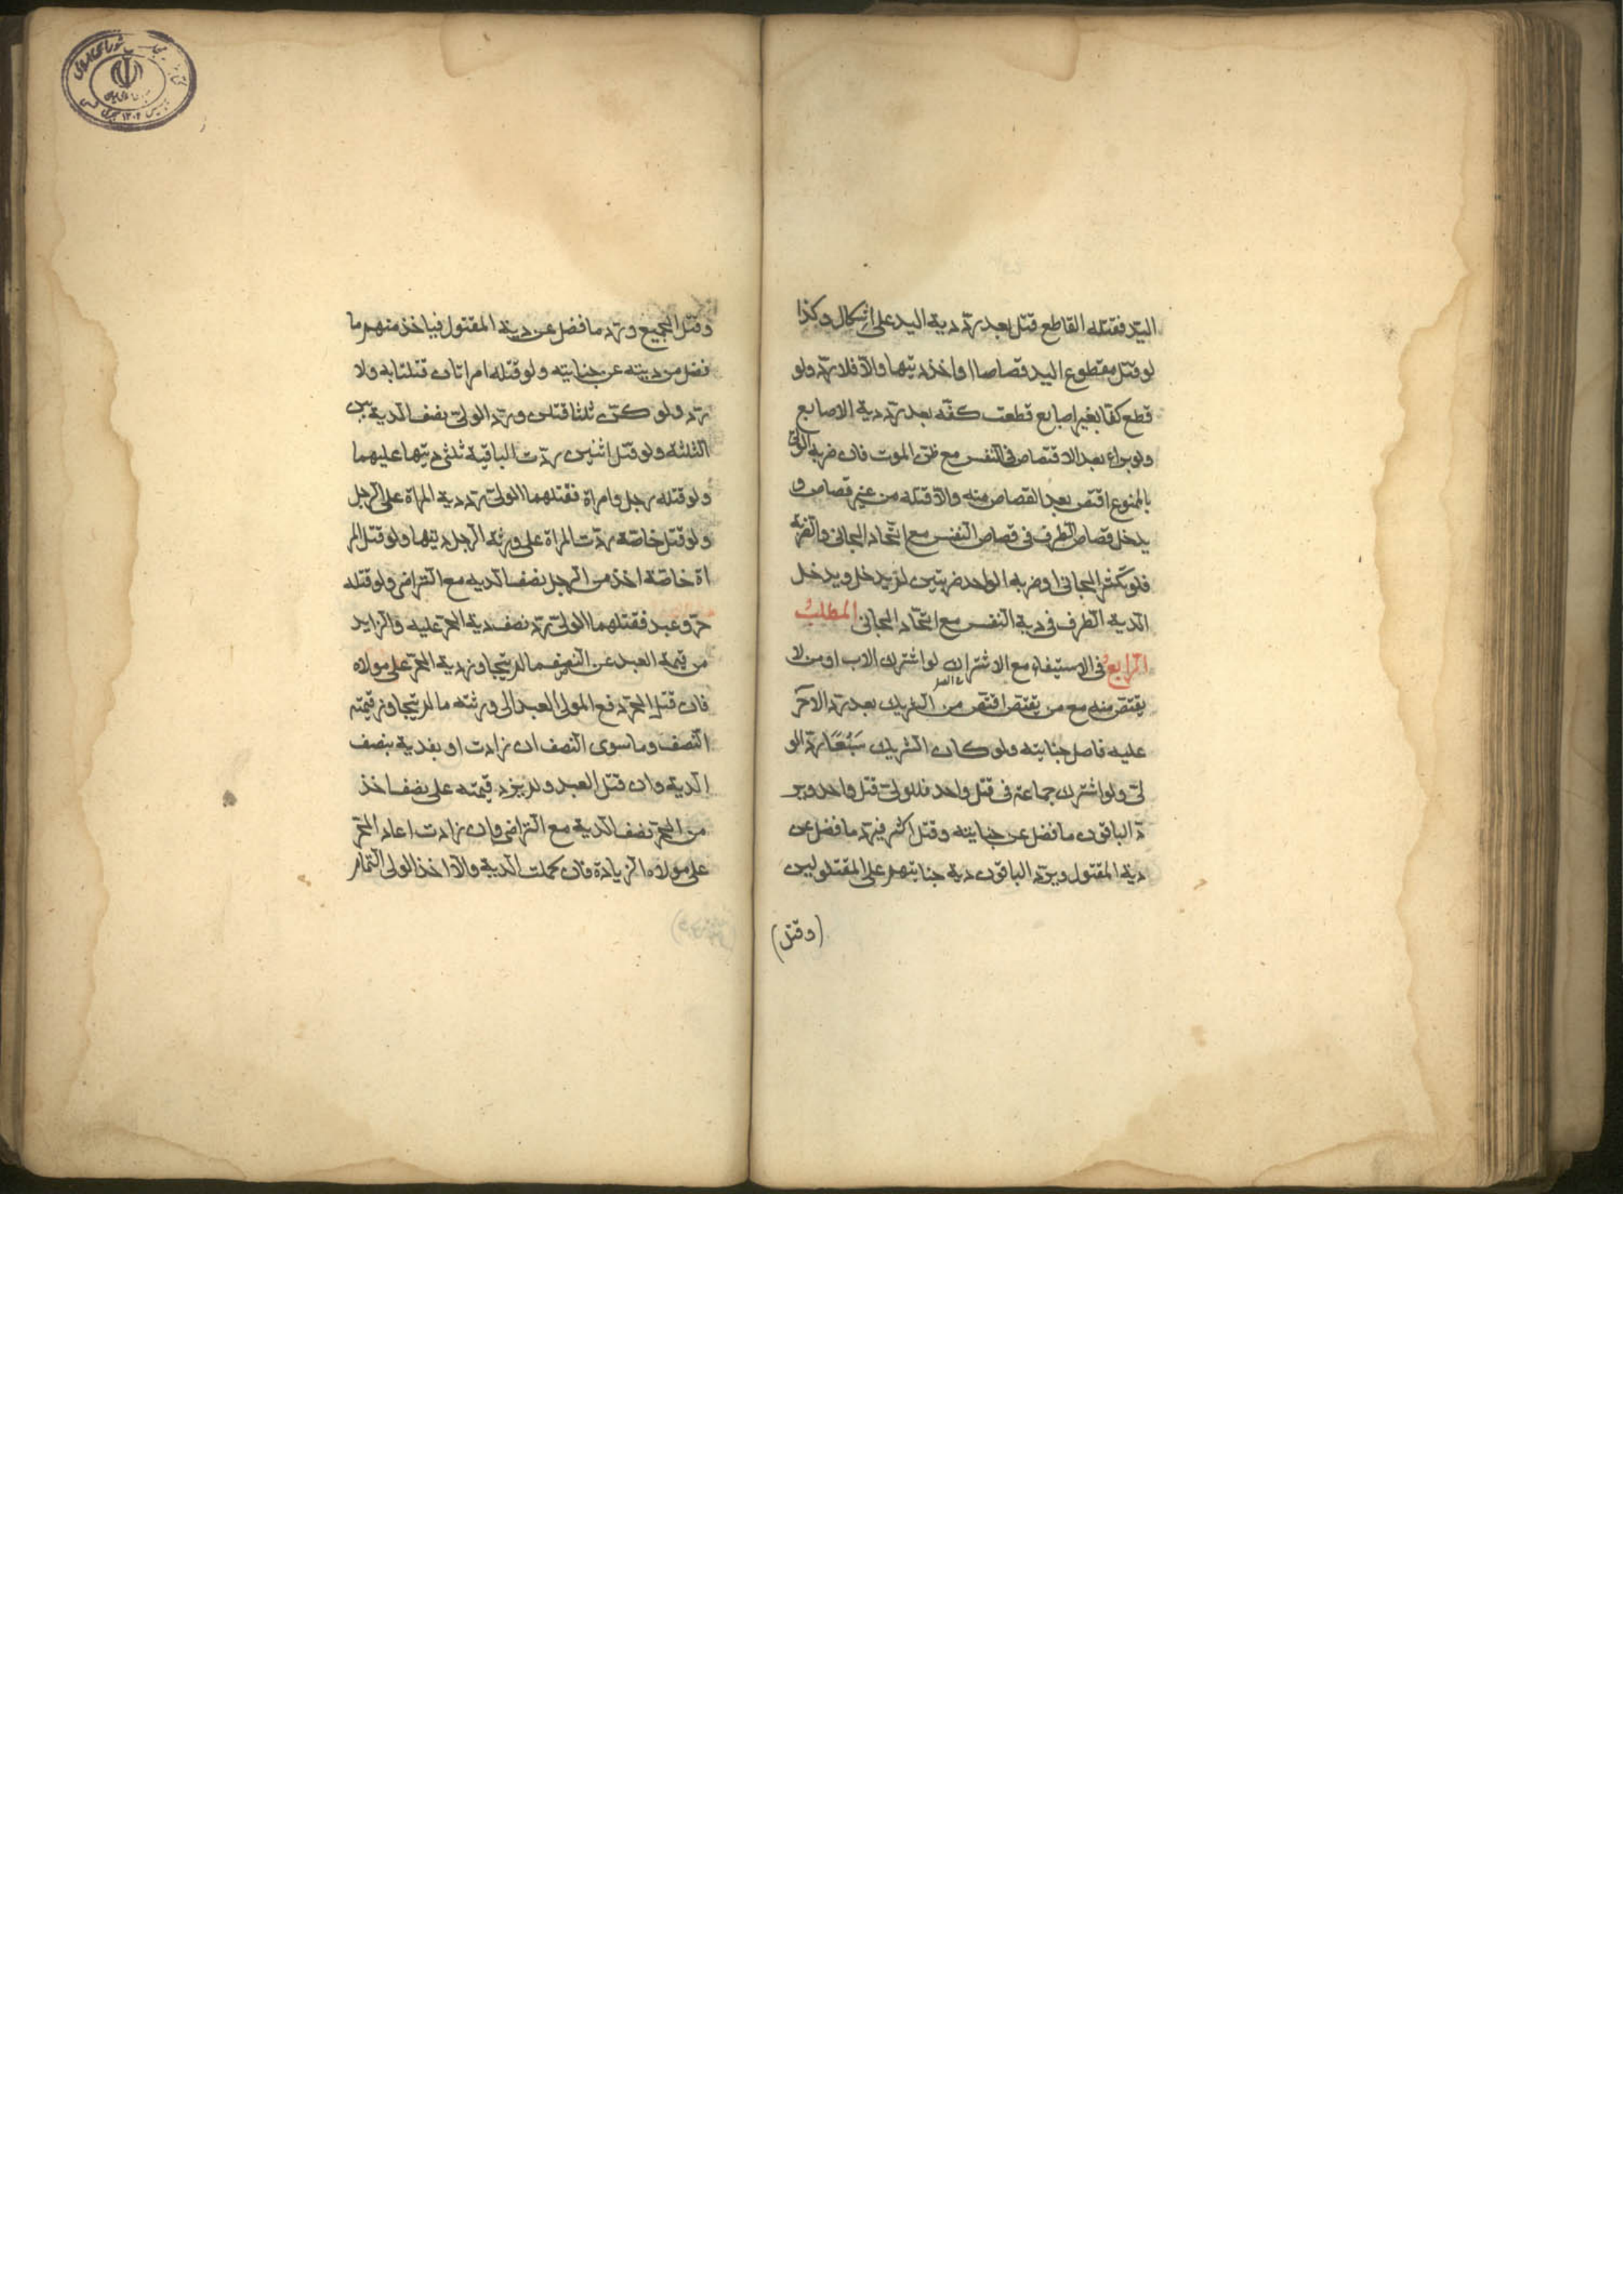 اليد فقتله القاطع قتل بعد رد دية اليد على اشكال وكذا
لو قتل مقطوع اليد قصاصا او اخذ ديتها والا فلا رد ولو
قطع كفا بغير اصابع قطعت كفه بعد رد دية الاصابع
ولو براء بعد الاقتصاص فى النفس مع ظن الموت فان ضربه الولى
بالممنوع اقتص بعد القصاص منه والا قتله من غير قصاص و
يدخل قصاص الطرف فى قصاص النفس مع اتحاد الجانى والضربة
فلو تكثر الجانى او ضربه الواحد ضربتين لم يدخل ويدخل
الدية الطرف فى دية النفس مع اتحاد الجانى المطلب
الرابع فى الاستيفاء مع الاشتراك لو اشترك الاب او من لا
يقتص منه مع من يقتص اقتص من الشريك بعد رد الاخر
عليه فاضل جنايته ولو كان الشريك سبعا رد الو
لى ولو اشترك جماعة فى قتل واحد فللولى قتل واحد وير
د الباقون ما فضل عن جنايته وقتل اكثر فيرد ما فضل عن
دية المقتول ويرد الباقون دية جنايتهم على المقتولين
(وقتل)
وقتل الجميع ورد ما فضل عن دية المقتول فياخذ منهم ما
فضل من ديته عن جنايته ولو قتله امراتان قتلتا به ولا
رد ولو كن ثلثا قتلن ورد الولى نصف الدية بين
الثلثة ولو قتل اثنين ردت الباقية ثلثى ديتها عليهما
ولو قتله رجل وامراة فقتلهما الولى رد دية المراة على الرجل
ولو قتل خاصة ردت المراة على ورثة الرجل ديتها ولو قتل المر
اة خاصة اخذ من الرجل نصف الدية مع التراضى ولو قتله
حر وعبد فقتلهما الولى رد نصف دية الحر عليه والزايد
من قيمة العبد عن النصف ما لم يتجاوز دية الحر على مولاه
فان قتل الحر دفع المولى العبد الى ورثته ما لم يتجاوز قيمته
النصف وما سوى النصف ان زادت او بفدية بنصف
الدية وان قتل العبد ولم يزد قيمته على نصف اخذ
من الحر نصف الدية مع التراضى وان زادت اعاد الحر
على مولاه الزيادة فان كملت الدية والا اخذ الولى التمام